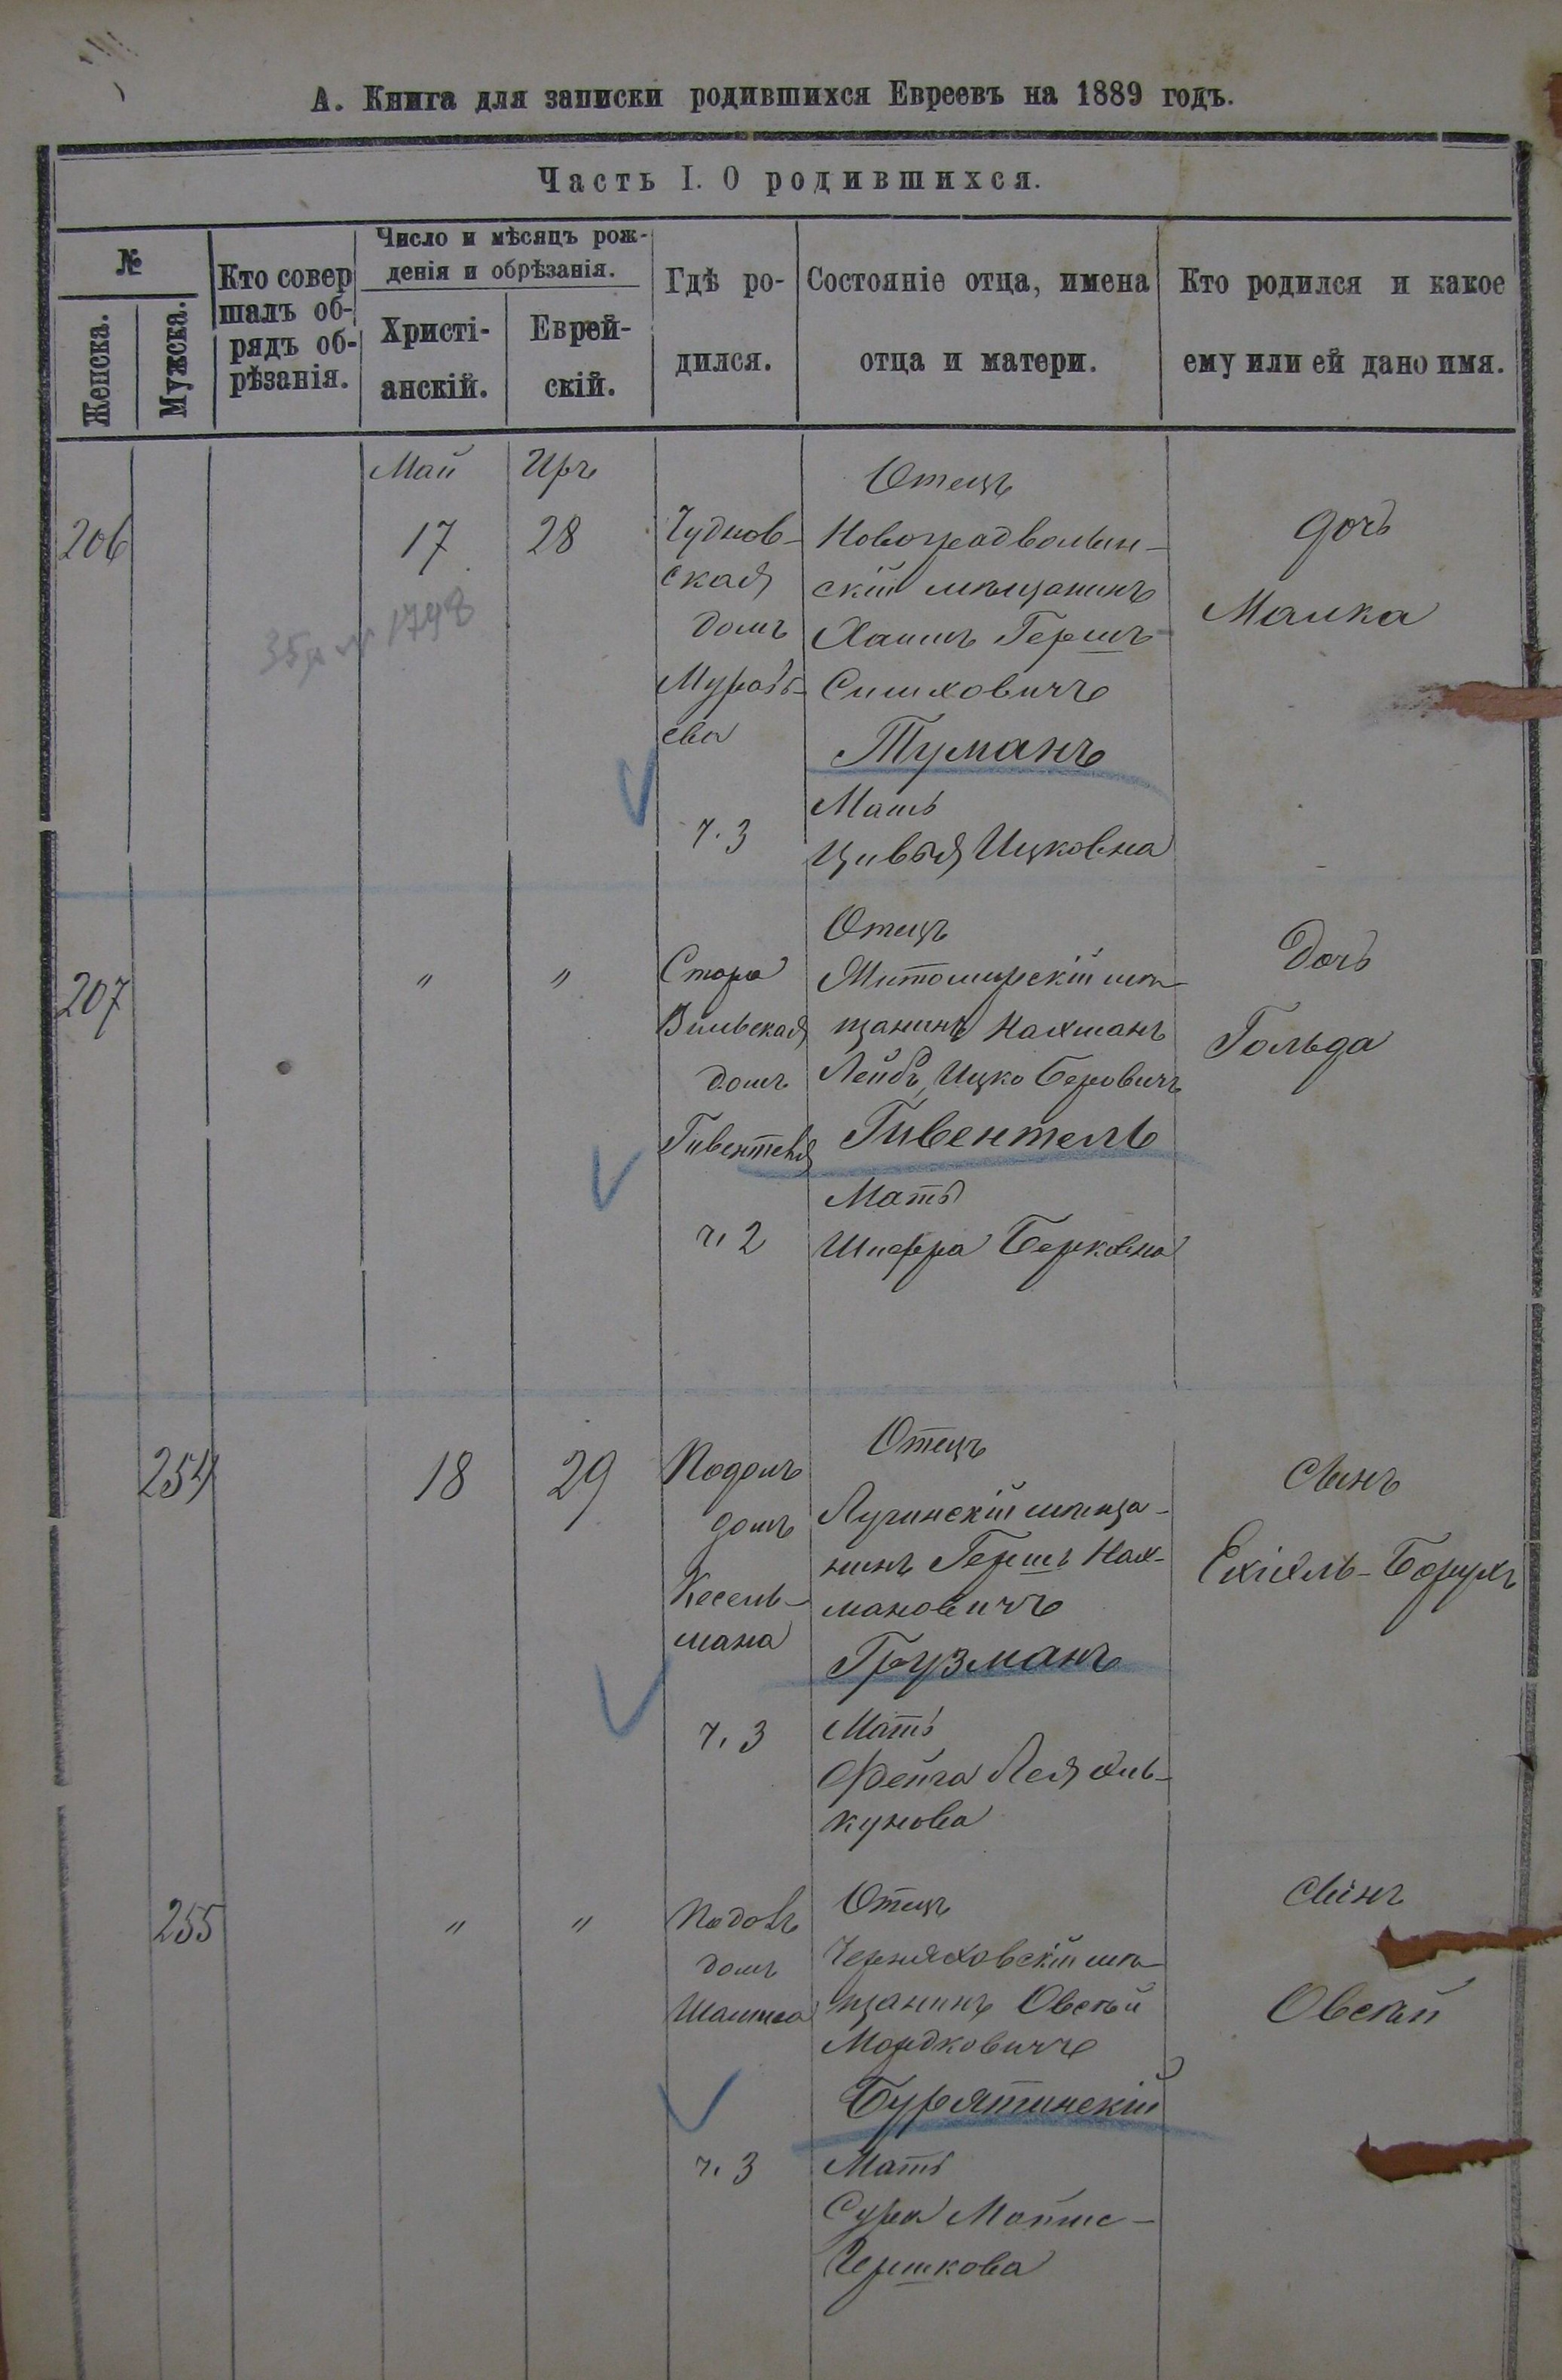 А. Книга для записки родившихся Евреевъ на 1889 годъ.
Часть I. О родившихся.
№
Женска.
Мужска.
Кто совер
шалъ об-
рядъ об-
рѣзанія.
Число и мѣсяцъ рож-
денія и обрѣзанія.
Христі-
анскій.
Еврей-
скій.
Гдѣ ро-
дился.
Состояніе отца, имена
отца и матери.
Кто родился и какое
ему или ей дано имя.
206
Май
17
Иръ
28
Чуднов-
ская
домъ
Муравь-
ева
ч. 3
Отецъ
Новоградволын-
скій мѣщанинъ
Хаимъ Гершъ
Симховичъ
Туманъ
Мать
Цивья Ицковна
дочь
Малка
207
"
"
Старо
Вильская
домъ
Гивентеля
ч. 2
Отецъ
Житомирскій мѣ-
щанинъ Нахманъ
Лейбъ, Ицко Беровичъ
Гивентель
Мать
Шифра Берковна
Дочь
Гольда
254
18
29
Подолъ
домъ
Кесель-
мана
ч. 3
Отецъ
Лугинскій мѣща-
нинъ Гершъ Нах-
мановичъ
Грузманъ
Мать
Фейга Лея
кунова
Сынъ
Ехіель-Борухъ
255
"
"
Подолъ
домъ
ч. 3
Отецъ
Черняховскій мѣ-
щанинъ Овсей
Мордковичъ
Бурятинскій
Мать
Сура
Гершкова
Сынъ
Овсей